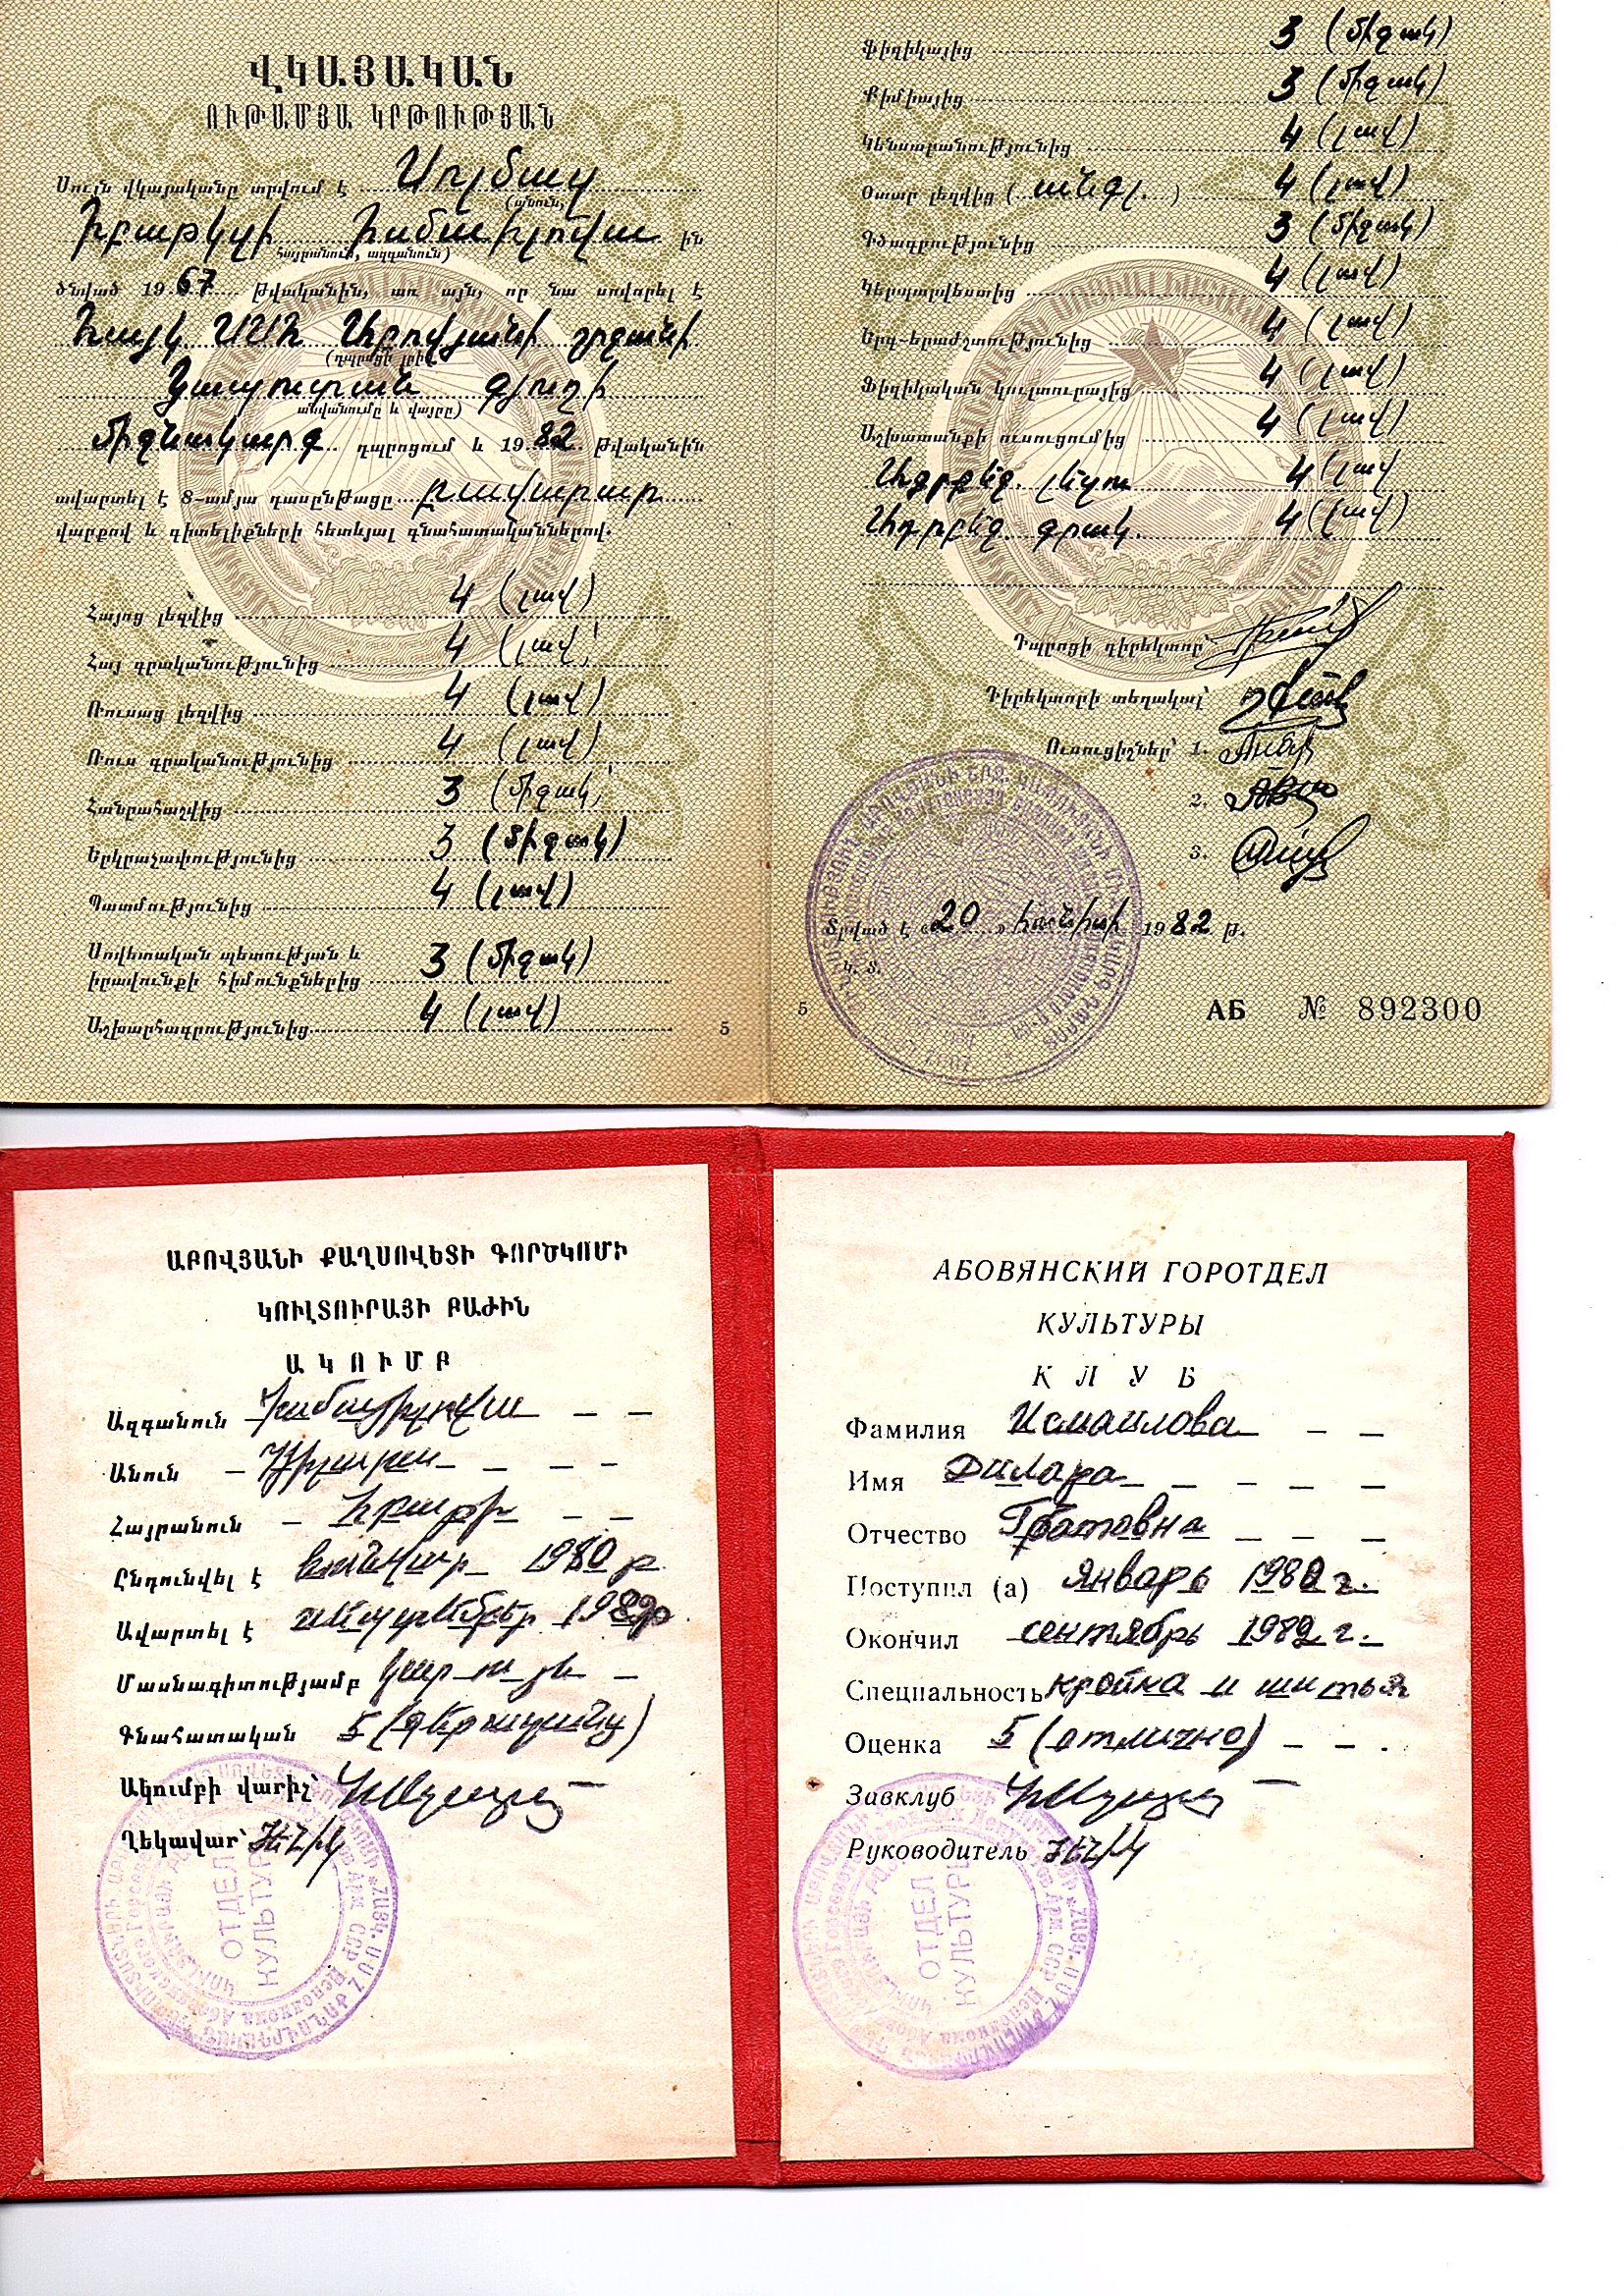 ՎԿԱՅԱԿԱՆ
ՈՒԹԱՄՅԱ ԿՐԹՈՒԹՅԱՆ
Սույն վկայականը տրվում է Սոլմազ
(անուն,
Իբաթկզի Իսմաիլովա ին
հայրանուն, ազգանուն)
ծնված 1967 թվականին, առ այն, որ նա սովորել է
Հայկ. ՍՍՀ Աբովյանի շրջանի
(դպրոցի լրիվ
Կապուտան գյուղի
անվանումը և վայրը)
միջնակարգ դպրոցում և 1982 թվականին
ավարտել է 8-ամյա դասընթացը բավարար
վարքով և գիտելիքների հետևյալ գնահատականներով.
Հայոց լեզվից 4 (լավ)
Հայ գրականությունից 4 (լավ)
Ռուսաց լեզվից 4 (լավ)
Ռուս գրականությունից 4 (լավ)
Հանրահաշվից 3 (միջակ)
Երկրաչափությունից 3 (միջակ)
Պատմությունից 4 (լավ)
Սովետական պետության և
իրավունքի հիմունքներից 3 (միջակ)
Աշխարհագրությունից 4 (լավ)
5
Ֆիզիկայից 3 (միջակ)
Քիմիայից 3 (միջակ)
Կենսաբանությունից 4 (լավ)
Օտար լեզվից (անգլ.) 4 (լավ)
Գծագրությունից 3 (միջակ)
Կերպարվեստից 4 (լավ)
Երգ-երաժշտությունից 4 (լավ)
Ֆիզիկական կուլտուրայից 4 (լավ)
Աշխատանքի ուսուցումից 4 (լավ)
Ադրբեջ. լեզու 4 (լավ
Ադրբեջ. գրակ. 4 (լավ)
Դպրոցի դիրեկտոր՝
Դիրեկտորի տեղակալ՝
Ուսուցիչներ՝ 1.
2.
3.
Տրված է «20» հունիսի 1982 թ.
Կ. Տ.
5
АБ № 892300
ԱԲՈՎՅԱՆԻ ՔԱՂՍՈՎԵՏԻ ԳՈՐԾԿՈՄԻ
ԿՈՒԼՏՈՒՐԱՅԻ ԲԱԺԻՆ
ԱԿՈՒՄԲ
Ազգանուն Իսմայիլովա
Անուն Դիլարա
Հայրանուն Իբաթի
Ընդունվել է հունվար 1980 թ
Ավարտել է սեպտեմբեր 1982թ
Մասնագիտությամբ կար ու ձև
Գնահատական 5 (գերազանց)
Ակումբի վարիչ՝
Ղեկավար՝
ОТДЕЛ
КУЛЬТУРЫ
АБОВЯНСКИЙ ГОРОТДЕЛ
КУЛЬТУРЫ
КЛУБ
Фамилия Исмаилова
Имя Дилара
Отчество Ибатовна
Поступил (а) январь 1980 г.
Окончил сентябрь 1982 г.
Специальность кройка и шитья
Оценка 5 (отлично)
Завклуб
Руководитель
ОТДЕЛ
КУЛЬТУРЫ